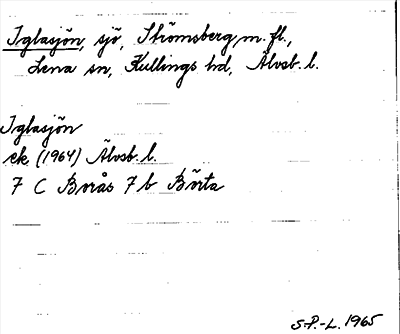 Iglasjön, sjö, Strömsberg m. fl.,
Lena sn, Kullings hd, Älvsb. l.
Iglasjön
ek (1964) Älvsb. l.
7 C Borås 7 b Börta
S.-P.-L. 1965